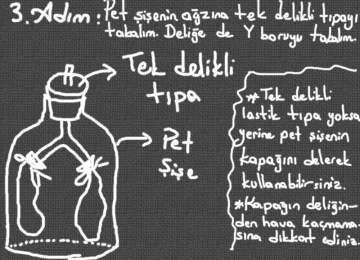 3. Adım : Pet şişenin ağzına tek delikli tıpayı
takalım. Deliğe de Y boruyu takalım.
Tek delikli
tıpa
Pet
Şişe
* Tek delikli
lastik tıpa yoksa
yerine pet şişenin
kapağını delerek
kullanabilirsiniz.
* Kapağın deliğin-
den hava kaçmama-
sına dikkat ediniz.